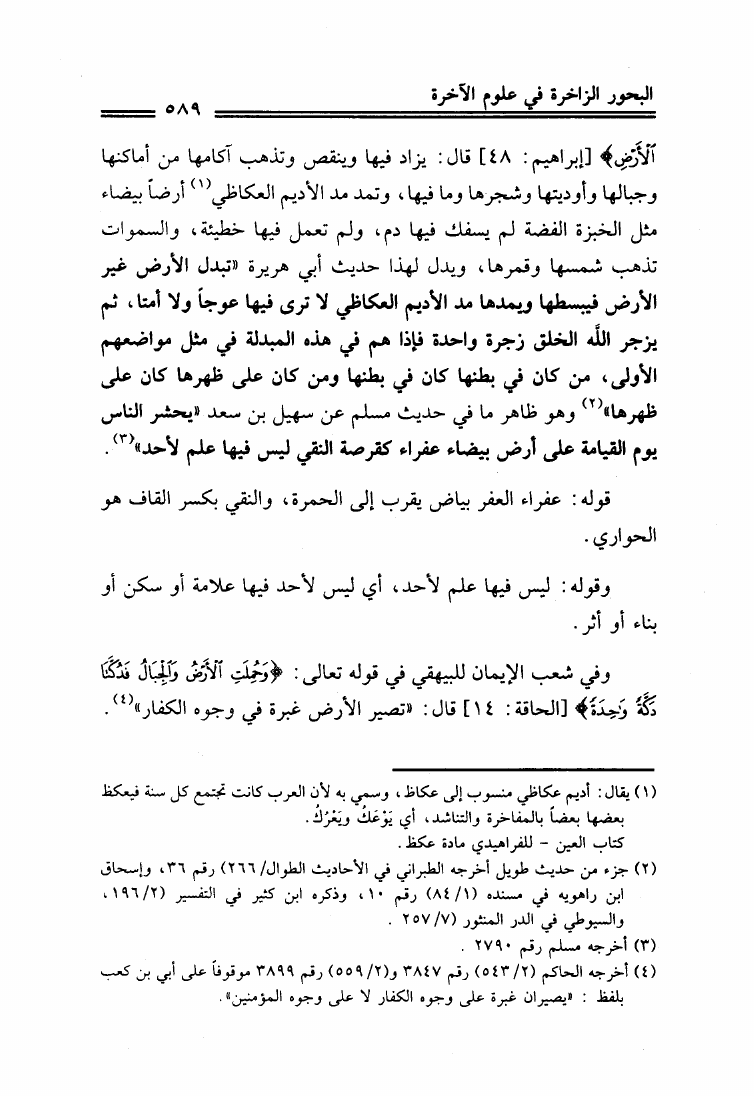 البحور الزاخرة في علوم الآخرة
٥٨٩
ٱلْأَرْضِ﴾ [إبراهيم: ٤٨] قال: يزاد فيها وينقص وتذهب آكامها من أماكنها
وجبالها وأوديتها وشجرها وما فيها، وتمد مد الأديم العكاظي(١) أرضاً بيضاء
مثل الخبزة الفضة لم يسفك فيها دم، ولم تعمل فيها خطيئة، والسموات
تذهب شمسها وقمرها، ويدل لهذا حديث أبي هريرة «تبدل الأرض غير
الأرض فيبسطها ويمدها مد الأديم العكاظي لا ترى فيها عوجاً ولا أمتا، ثم
يزجر الله الخلق زجرة واحدة فإذا هم في هذه المبدلة في مثل مواضعهم
الأولى، من كان في بطنها كان في بطنها ومن كان على ظهرها كان على
ظهرها»(٢) وهو ظاهر ما في حديث مسلم عن سهيل بن سعد «يحشر الناس
يوم القيامة على أرض بيضاء عفراء كقرصة النقي ليس فيها علم لأحد»(٣).
قوله: عفراء العفر بياض يقرب إلى الحمرة، والنقي بكسر القاف هو
الحواري.
وقوله: ليس فيها علم لأحد، أي ليس لأحد فيها علامة أو سكن أو
بناء أو أثر.
وفي شعب الإيمان للبيهقي في قوله تعالى: ﴿وَحُمِلَتِ ٱلْأَرْضُ وَٱلْجِبَالُ فَدُكَّتَا
دَكَّةً وَٰحِدَةً﴾ [الحاقة: ١٤] قال: «تصير الأرض غبرة في وجوه الكفار»(٤).
(١) يقال: أديم عكاظي منسوب إلى عكاظ، وسمي به لأن العرب كانت تجتمع كل سنة فيعكظ
بعضها بعضاً بالمفاخرة والتناشد، أي يَوْعَكُ ويَعْرُكُ.
كتاب العين - للفراهيدي مادة عكظ.
(٢) جزء من حديث طويل أخرجه الطبراني في الأحاديث الطوال/٢٦٦) رقم ٣٦، وإسحاق
ابن راهويه في مسنده (٨٤/١) رقم ١٠، وذكره ابن كثير في التفسير (١٩٦/٢،
والسيوطي في الدر المنثور (٢٥٧/٧ .
(٣) أخرجه مسلم رقم ٢٧٩٠ .
(٤) أخرجه الحاكم (٥٤٣/٢) رقم ٣٨٤٧ و(٥٥٩/٢) رقم ٣٨٩٩ موقوفاً على أبي بن كعب
بلفظ : «يصيران غبرة على وجوه الكفار لا على وجوه المؤمنين».